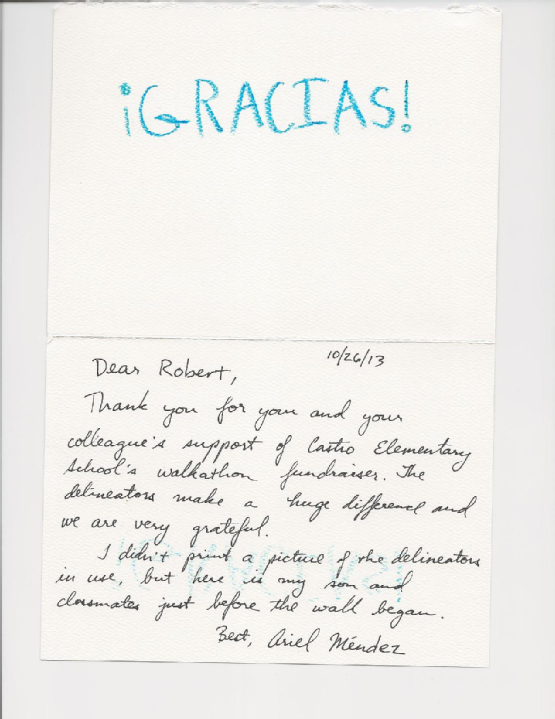 ¡GRACIAS!
10/26/13
Dear Robert,
Thank you for your and your
colleague's support of Castro Elementary
School's walkathon fundraiser. The
delineators make a huge difference and
we are very grateful.
I didn't print a picture of the delineators
in use, but here is my son and
classmates just before the walk began.
Best, Ariel Méndez